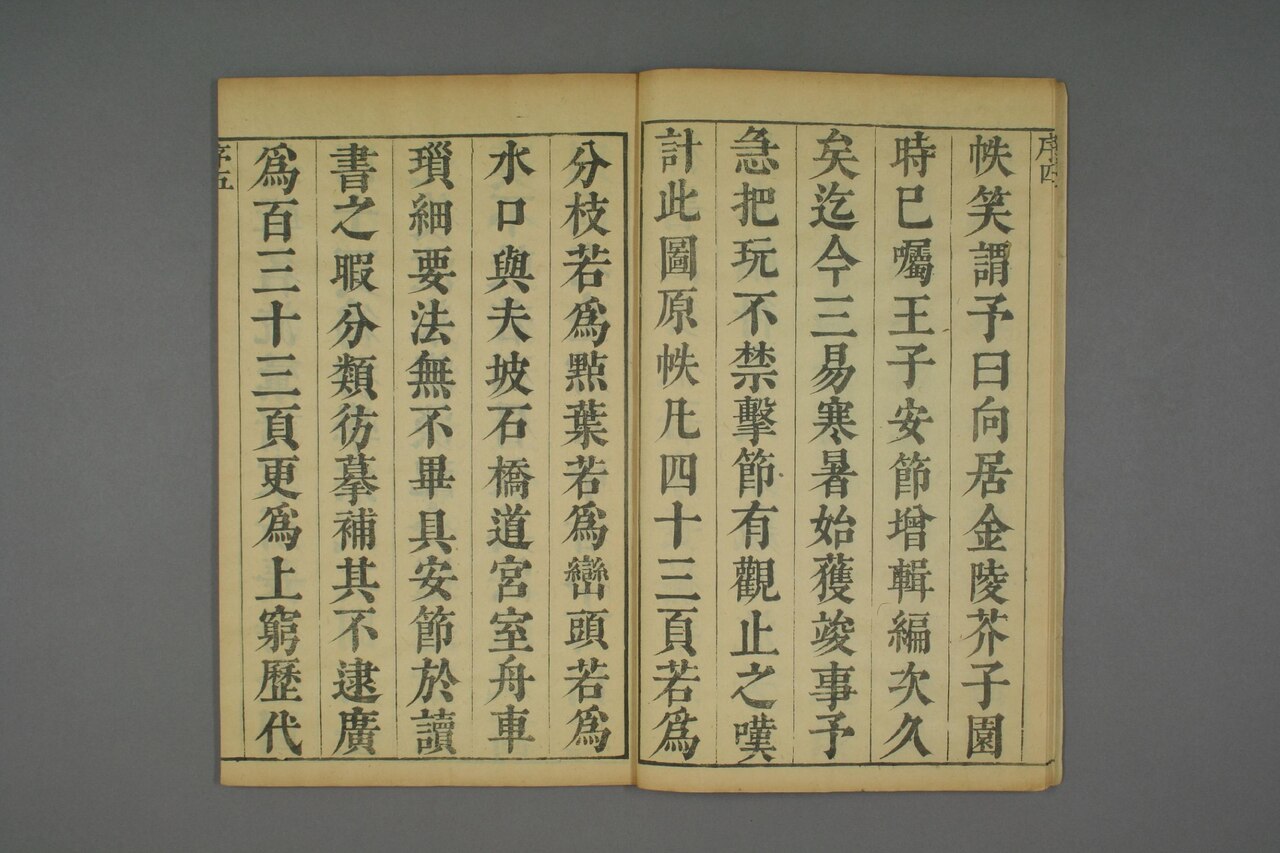 序四
帙笑謂予曰向居金陵芥子園
時已囑王子安節增輯編次久
矣迄今三易寒暑始獲竣事予
急把玩不禁擊節有觀止之嘆
計此圖原帙凡四十三頁若爲
分枝若爲點葉若爲巒頭若爲
水口與夫坡石橋道宮室舟車
瑣細要法無不畢具安節於讀
書之暇分類彷摹補其不逮廣
爲百三十三頁更爲上窮歷代
序五